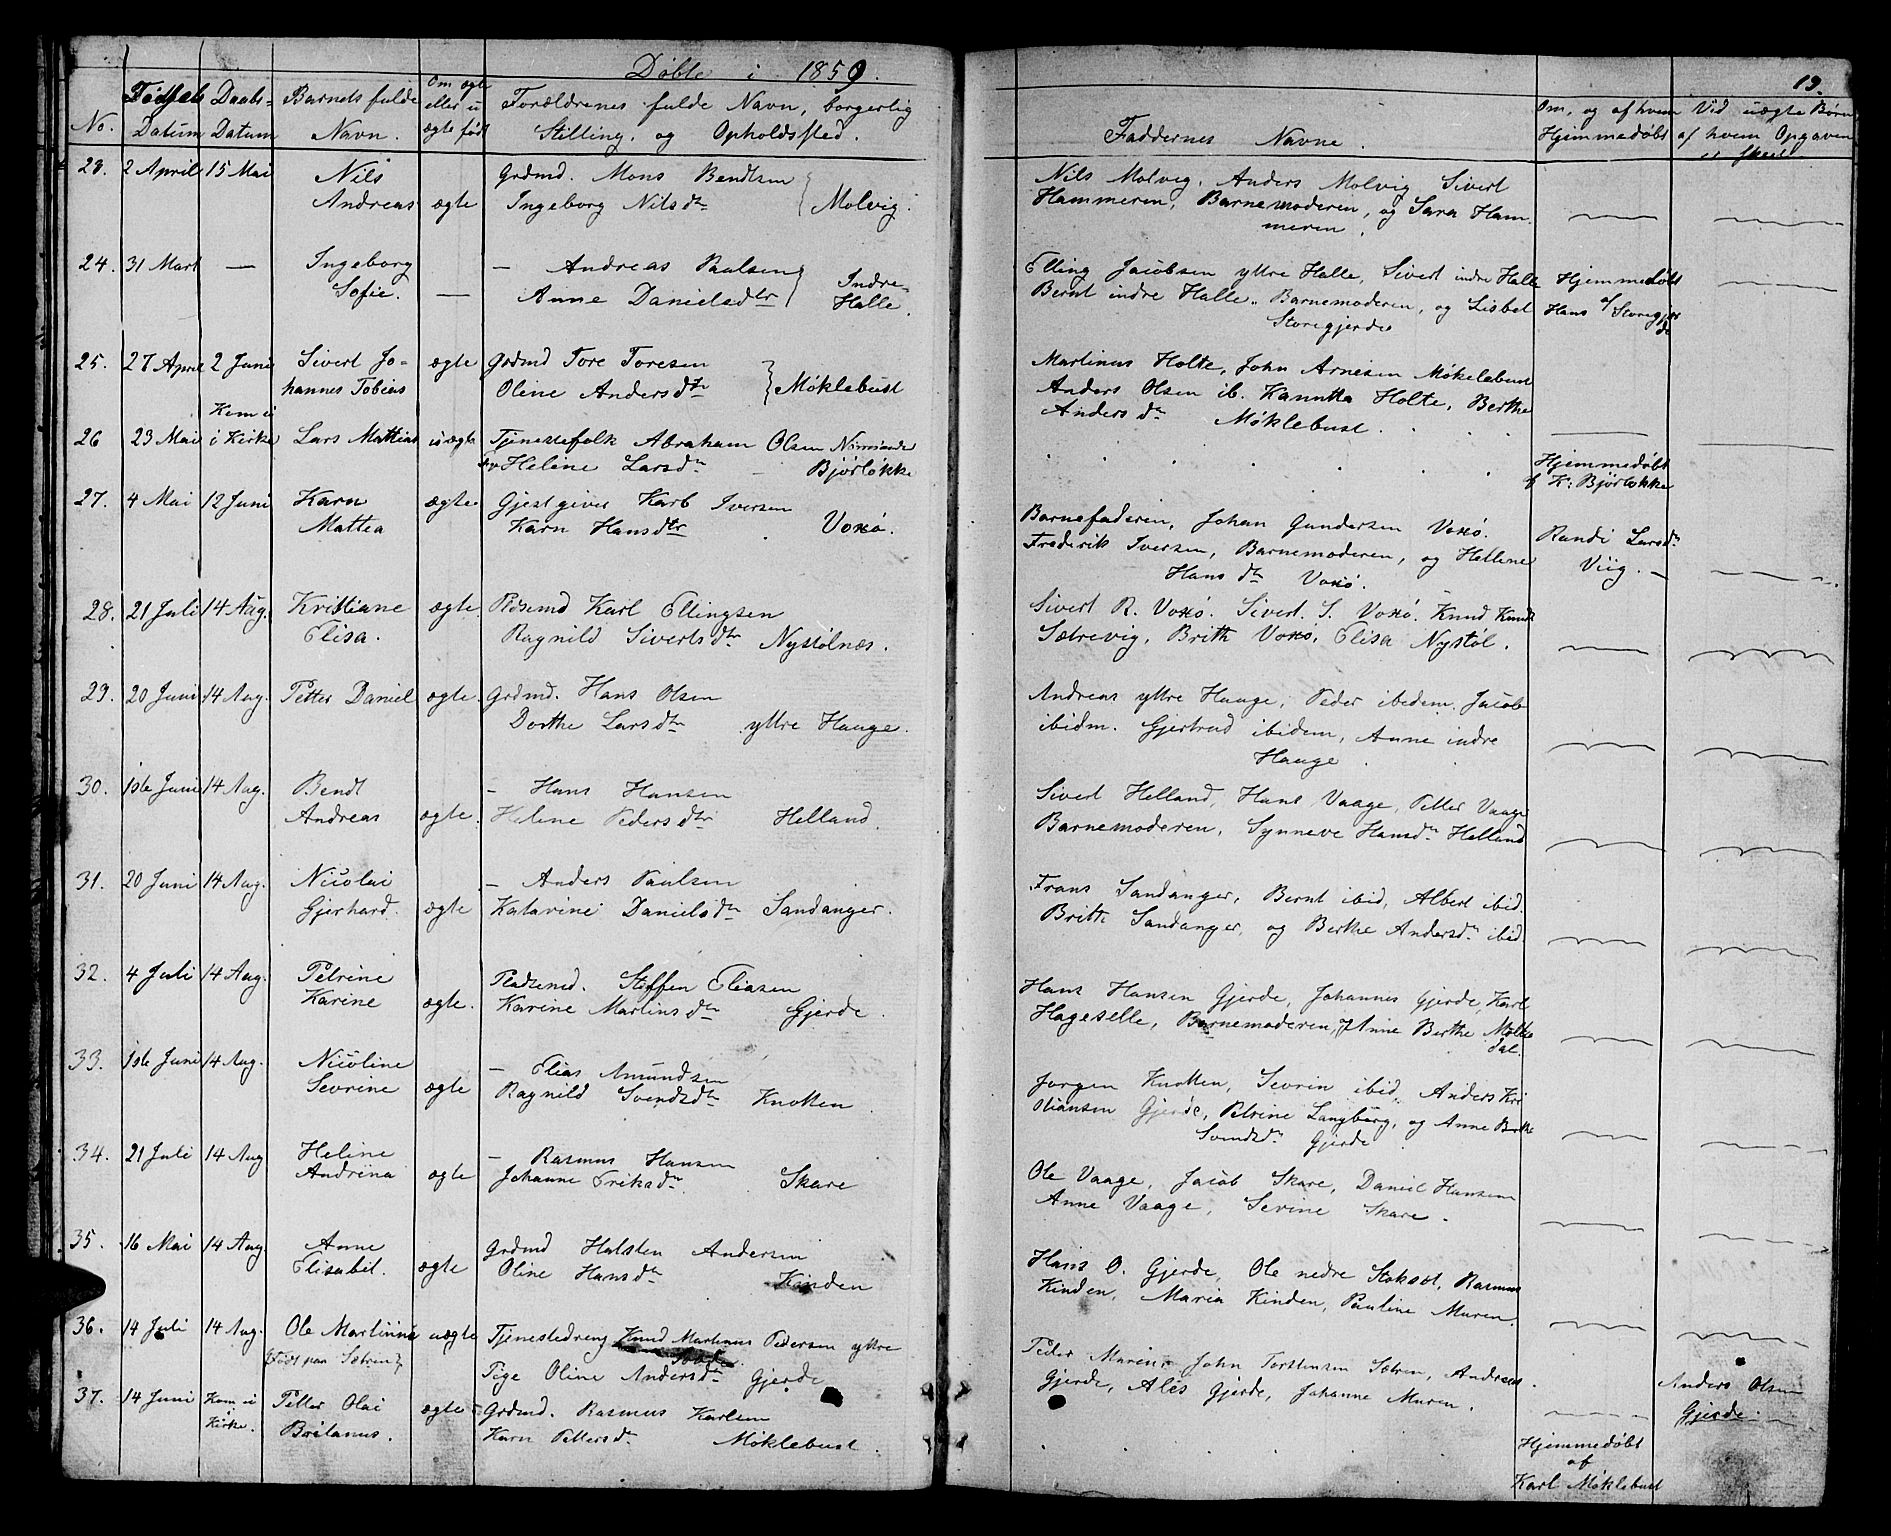 Døbte i 1859.
No. Fødsels Datum Daabs-Datum Barnets fulde Navn. Om ægte eller uægte født Forældrenes fulde Navn, borgerlig Stilling, og Opholdssted.
23. 2 April 15 Mai Nils Grdmd. Mons Bendtsen
Andreas ægte Ingeborg Nilsdtr Molvig.
24. 31 Mart — Ingeborg — Andreas Paulsen Indre-
Sofie. — Anne Danielsdtr Halle.
25. 27 April 2 Juni Sivert Jo- ægte Grdmd Tore Toresen
hannes Tobias Oline Andersdtr Møklebust
Kom ei
26 23 Mai i Kirke Lars Mattias uægte Tjenestefolk Abraham Olsen
Heline Larsdtr — Bjørløkke
27. 4 Mai 12 Juni Karn ægte Gjestgiver Karl Iversen
Mattea Karn Hansdtr Voxø.
28. 21 Juli 14 Aug. Kristiane ægte Pldsmd Karl Ellingsen
Elisa. Ragnild Sivertsdtr Nystølnæs.
29. 20 Juni 14 Aug. Petter Daniel ægte Grdmd. Hans Olsen
Dorthe Larsdtr yttre Hauge.
30. 1ste Juni 14 Aug. Bendt — Hans Hansen
Andreas ægte. Helene Pedersdtr Helland.
31. 20 Juni 14 Aug. Nicolai — Anders Paulsen
Gjerhard. ægte Katarine Danielsdtr Sandanger.
32. 4 Juli 14 Aug. Petrine Pladsmd. Steffen Eliasen
Karine ægte. Karine Martinsdtr Gjerde.
33. 1ste Juni 14 Aug. Nicoline — Elias Amundsen
Sevrine ægte Ragnild Svendsdtr Knotten
34. 21 Juli 14 Aug Heline — Rasmus Hansen
Andrina ægte Johanne Eriksdtr. Skare
35. 16 Mai 14 Aug. Anne Grdmd Halsten Andersen
Elisabet. ægte Oline Hansdtr Kinden
36. 14 Juli 14 Aug. Ole Martinus uægte Tjenestedreng Knud Martinus Pedersen yttre
(Født paa Sætren)
Pige Oline Andersdtr Gjerde
37. 14 Juni Kom ei Petter Olai ægte Grdmd. Rasmus Karlsen
i Kirke. Britanus. Karn Pettersdtr Møklebust.
19.
Faddernes Navne. Om, og af hvem Hjemmedøbt Vid uægte Børn af hvem Opgaven er skeet
Nils Molvig, Anders Molvig Sivert
Hammeren, Barnemoderen, og Sara Ham-
meren.
Elling Jacobsen yttre Halle, Sivert indre Halle Hjemmedøbt
Bernt indre Halle, Barnemoderen, og Lisbet Hans Storegjer-
Storegjerde de
Martinus Holte, John Arnesen Møkelebust
Anders Olsen ib. Kanutta Holte, Berthe
Andersdtr Møklebust.
Hjemmedøbt
K: Bjørløkke
Barnefaderen, Johan Gundersen Voxø. Randi Larsdtr
Frederik Iversen, Barnemoderen, og Hellene Viig.
Hansdtr Voxø.
Sivert R. Voxø. Sivert. S. Voxø. Knud Knuds
Sætrevig, Brith Voxø, Elisa Nystøl.
Andreas yttre Hauge, Peder ibedem. Jacob
ibidm. Gjertrud ibidem, Anne indre
Hauge.
Sivert Helland, Hans Vaage, Petter Vaage
Barnemoderen, Synneve Hansdtr Helland
Frans Sandanger, Bernt ibid, Albert ibid.
Britte Sandanger, og Berthe Andersdtr ibid
Hans Hansen Gjerde, Johannes Gjerde, Karl
Hageselle, Barnemoderen, Anne Berthe Molte
dal.
Jørgen Knotten, Sevrin ibid, Anders Kri
stiansen Gjerde, Petrine Langberg, og Anne Berthe
Svendsdtr Gjerde
Ole Vaage, Jacob Skare, Daniel Hansen
Anne Vaage, Serine Skare.
Hans O. Gjerde, Ole nedre Stokset, Rasmus
Kinden, Maria Kinden, Pauline Muren.
Peder Muren, John Torstensen Sætren, Andreas Anders Olsen
Gjerde, Ales Gjerde, Johanne Muren. Gjerde.
Hjemmedøbt
af
Karl Møklebust